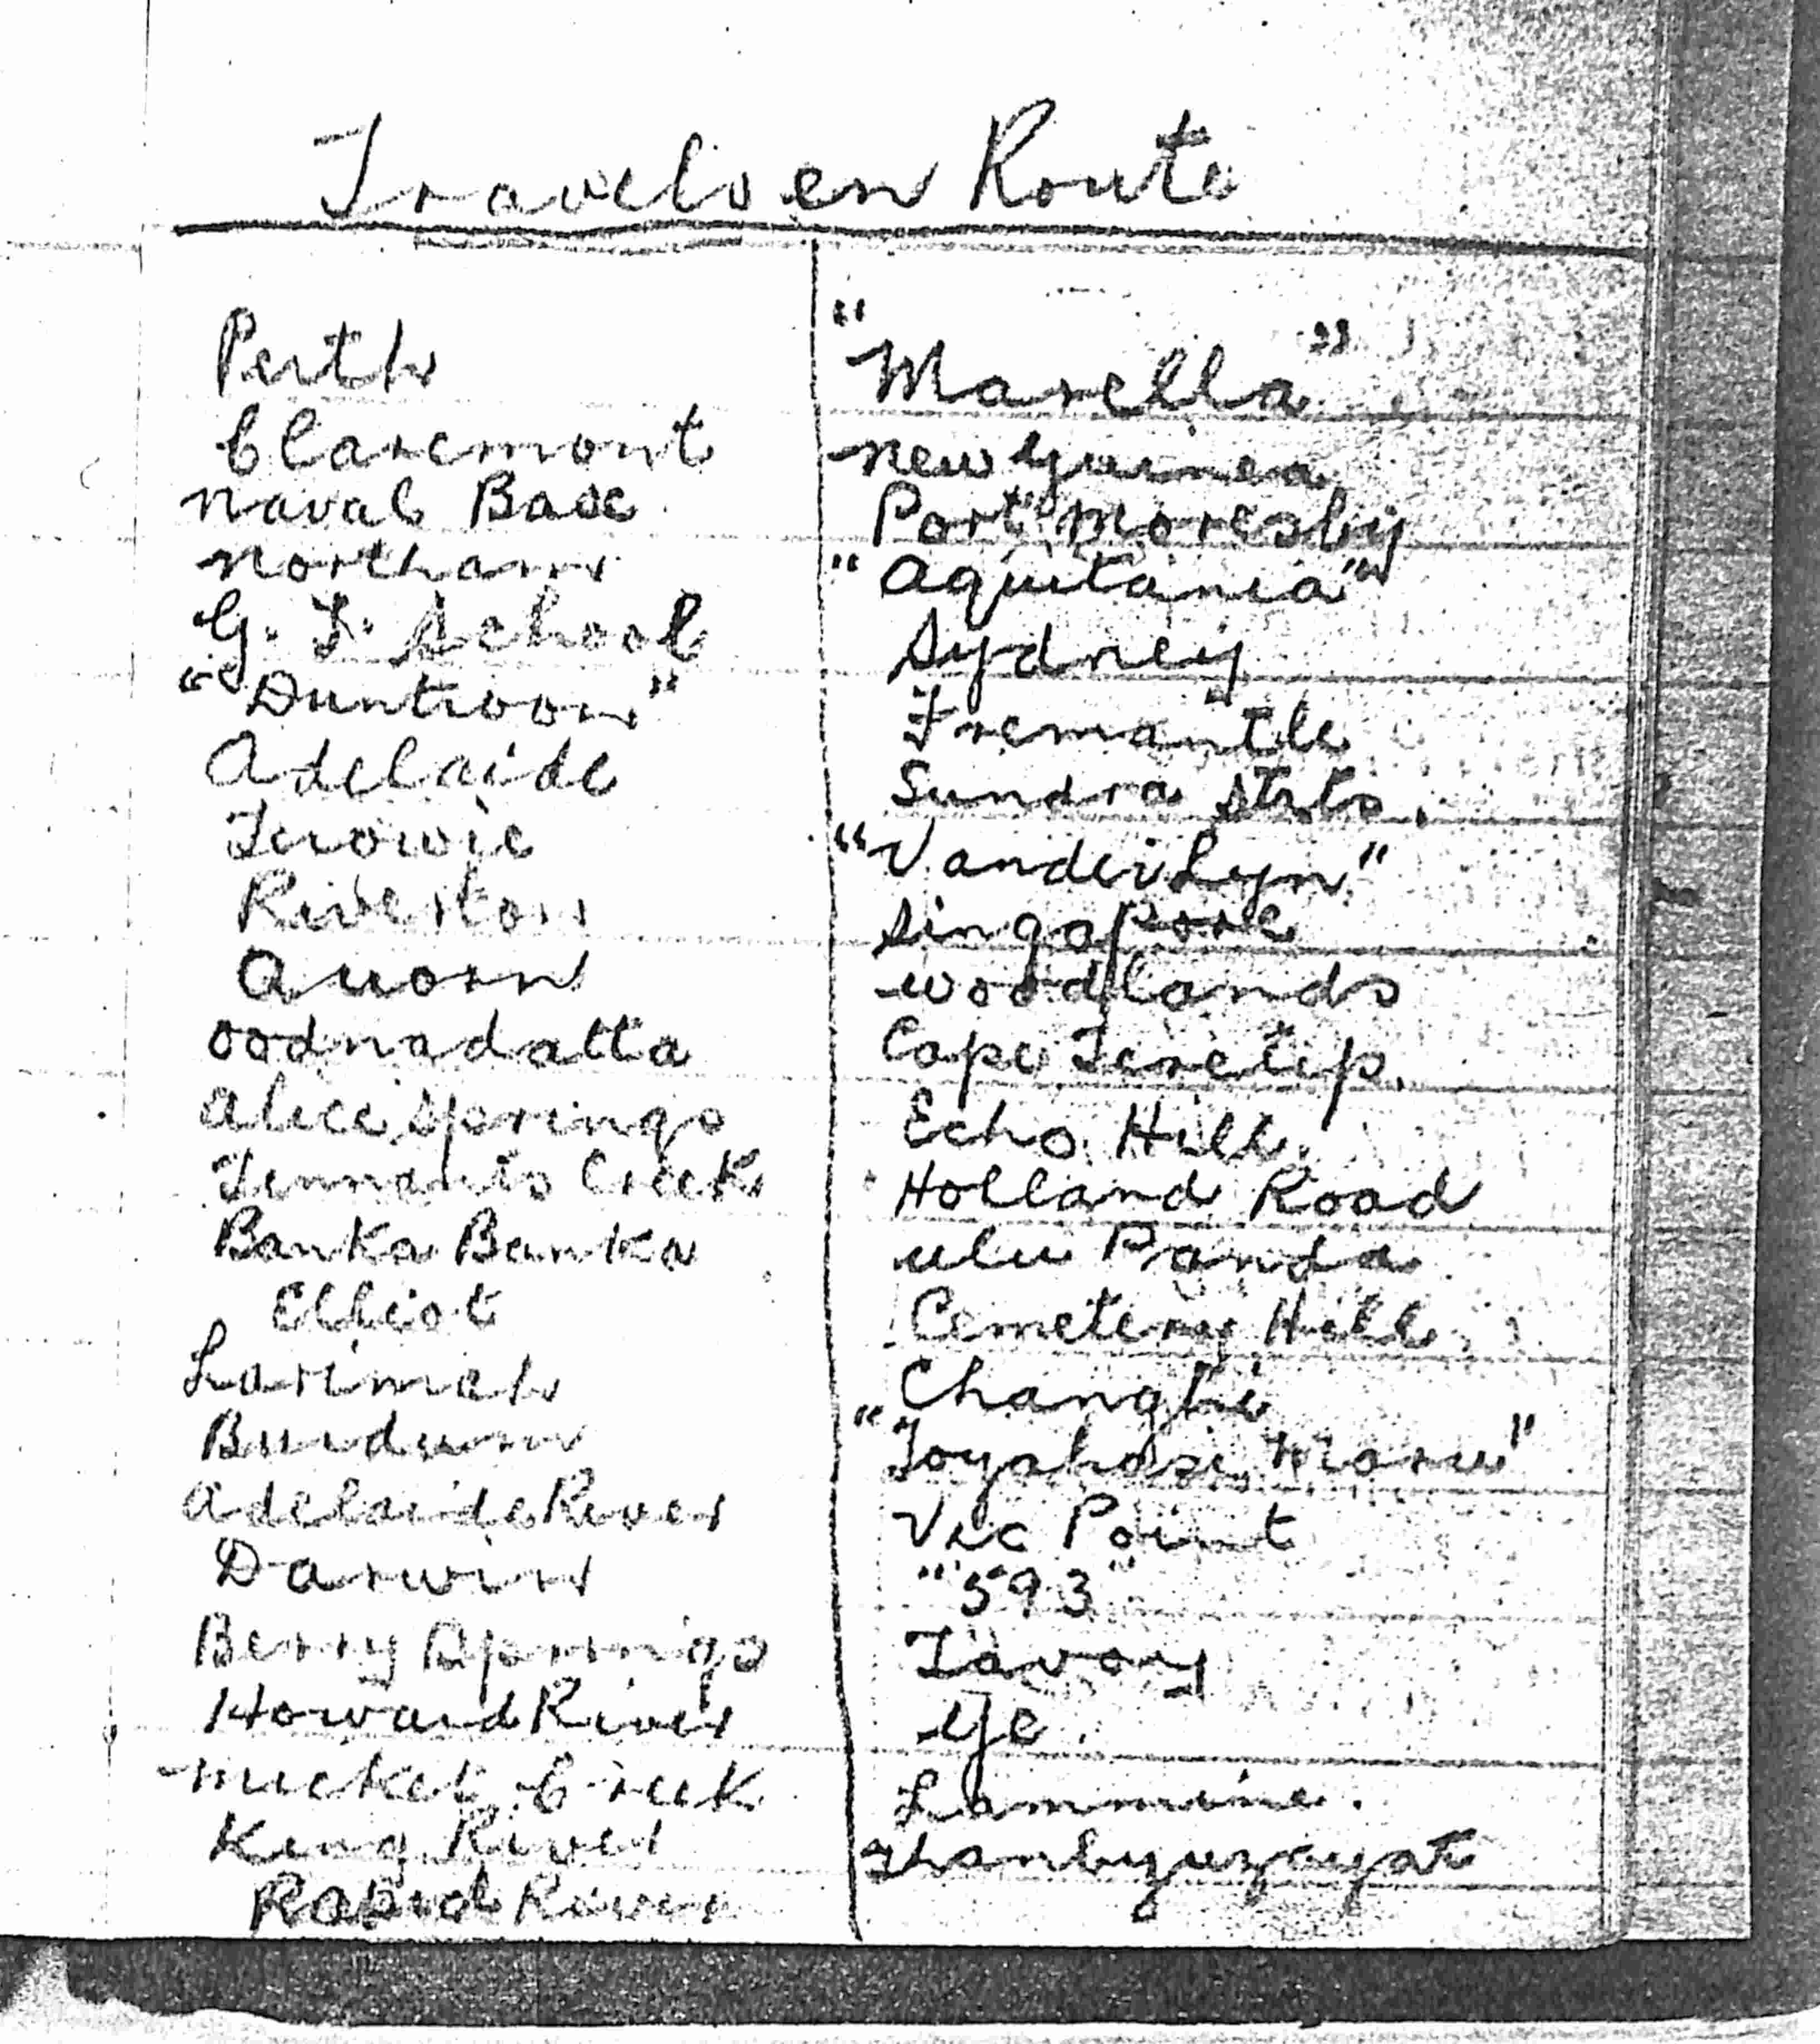 Travels en Route
Perth
Claremont
Naval Base
Northam
G. T. School
"Duntroon"
Adelaide
Terowie
Riverton
Quorn
Oodnadatta
Alice Springs
Tennants Creek
Banka Banka
Elliot
Larimah
Burdum
Adelaide River
Darwin
Berry Springs
Howard River
Mucket Creek
King River
Rapid River
"Marella"
New Guinea
Port Moresby
"Aquitania"
Sydney
Fremantle
Sundra Strts.
"VanderLyn"
Singapore
Woodlands
Cape Teretip.
Echo Hill.
Holland Road
Ulu Panda
Cemetery Hill
Changhi
"Toyahasi Maru"
Vic Point
"593"
Tavoy
Ye.
Lammine.
Thanbyuzayat